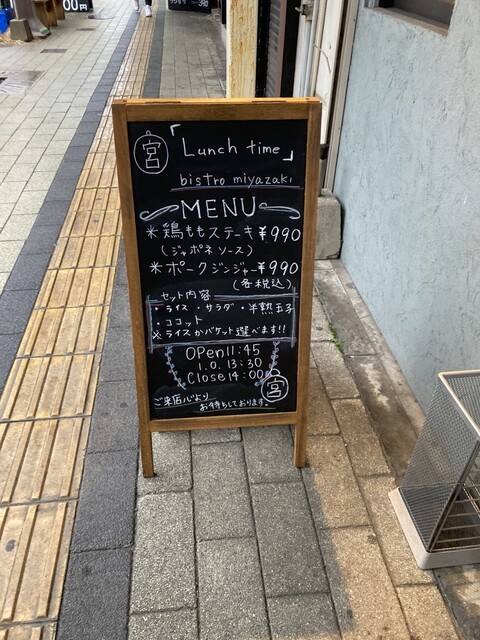 00円
390
宮
「Lunch time」
bistro miyazaki
MENU
＊鶏ももステーキ ¥990
(ジャポネソース)
＊ポークジンジャー ¥990
(各税込)
セット内容
・ライス・サラダ・半熟玉子
・ココット
※ライスかバケット選べます!!
OPen 11:45
l.o. 13:30
Close 14:00
宮
ご来店心より
お待ちしております。